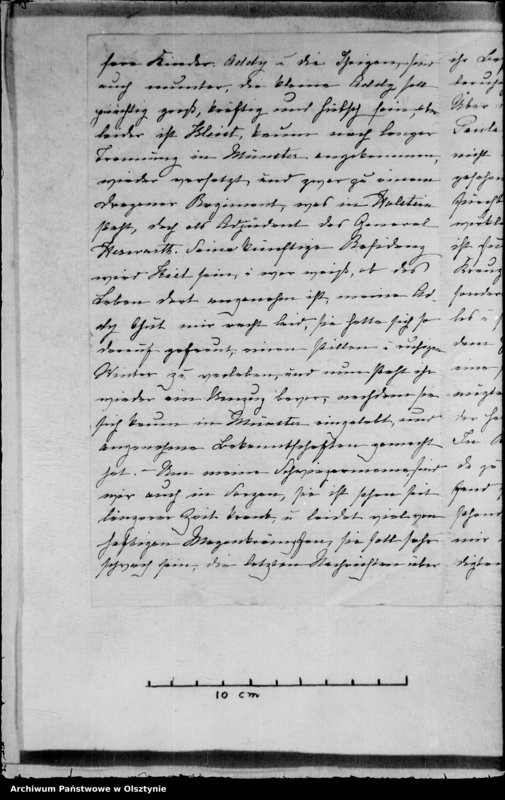 sern Kinder. Addy u die Ihrigen, sind
auch munter, der kleine Addy soll
prächtig groß, kräftig und hübsch sein, aber
leider ist Kleist, kaum nach langer
Trennung in Münster angekommen,
wieder versetzt, und zwar zu einem
Dragoner Regiment, was in Holstein
steht, doch als Adjudant des General
Seine künftige Residenz
wird Kiel sein, u wer weiß, ob das
Leben dort angenehm ist, meine Ad-
dy thut mir recht leid, sie hatte sich so
darauf gefreut, einen stillen u ruhigen
Winter zu verleben, und nun steht ihr
wieder ein Umzug bevor, nachdem sie
sich kaum in Münster eingelebt, und
angenehme Bekanntschaften gemacht
hat. – Um meine Schwiegermama sind
wir auch in Sorgen, sie ist schon seit
längerer Zeit krank, u leidet viel von
heftigen Magenkrämpfen, sie soll sehr
schwach sein, die letzten Nachrichten über
ihr
über
Paula
nicht
gesehen
ist
Kreuz
sonder
les u
dem
eine
der
In
de zu
mir
digten
10 cm
Archiwum Państwowe w Olsztynie